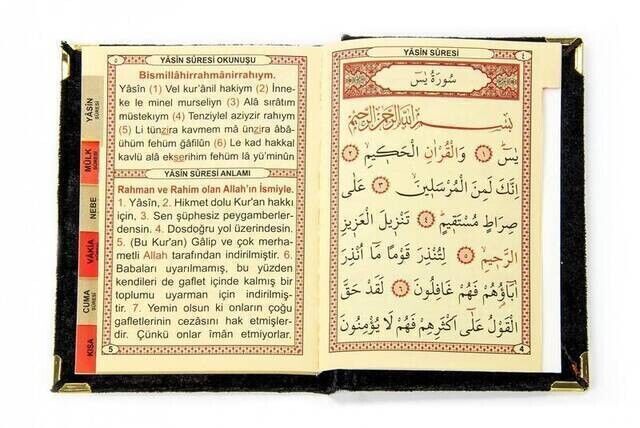 YÂSÎN SÛRESİ OKUNUŞU
Bismillâhirrahmânirrahıym.
Yâsîn (1) Vel kur'ânil hakiym (2) İnne-
ke le minel murseliyn (3) Alâ sırâtım
müstekıym (4) Tenziylel aziyzir rahıym
(5) Li tünzira kavmem mâ ünzira âbâ-
ühüm fehüm ğâfilûn (6) Le kad hakkal
kavlü alâ ekserihim fehüm lâ yü'minûn
YÂSÎN SÛRESİ ANLAMI
Rahman ve Rahim olan Allah'ın İsmiyle.
1. Yâsîn, 2. Hikmet dolu Kur'an hakkı
için, 3. Sen şüphesiz peygamberler-
densin. 4. Dosdoğru yol üzerindesin.
5. (Bu Kur'an) Gâlip ve çok merha-
metli Allah tarafından indirilmiştir. 6.
Babaları uyarılmamış, bu yüzden
kendileri de gaflet içinde kalmış bir
toplumu uyarman için indirilmiş-
tir. 7. Yemin olsun ki onların çoğu
gafletlerinin cezâsını hak etmişler-
dir. Çünkü onlar îmân etmiyorlar.
5
YÂSÎN SÛRESİ
MÜLK SÛRESİ
NEBE
VÂKIA SÛRESİ
CUMA SÛRESİ
KISA
YÂSÎN SÛRESİ
٤
سُورَةُ يٰسٓ
بِسْمِ اللّٰهِ الرَّحْمٰنِ الرَّحِيمِ
يٰسٓ ﴿١﴾ وَالْقُرْاٰنِ الْحَكِيمِ ﴿٢﴾
اِنَّكَ لَمِنَ الْمُرْسَلِينَ ﴿٣﴾ عَلٰى
صِرَاطٍ مُسْتَقِيمٍ ﴿٤﴾ تَنْزِيلَ الْعَزِيزِ
الرَّحِيمِ ﴿٥﴾ لِتُنْذِرَ قَوْمًا مَٓا اُنْذِرَ
اٰبَٓاؤُهُمْ فَهُمْ غَافِلُونَ ﴿٦﴾ لَقَدْ حَقَّ
الْقَوْلُ عَلٰٓى اَكْثَرِهِمْ فَهُمْ لَا يُؤْمِنُونَ
4